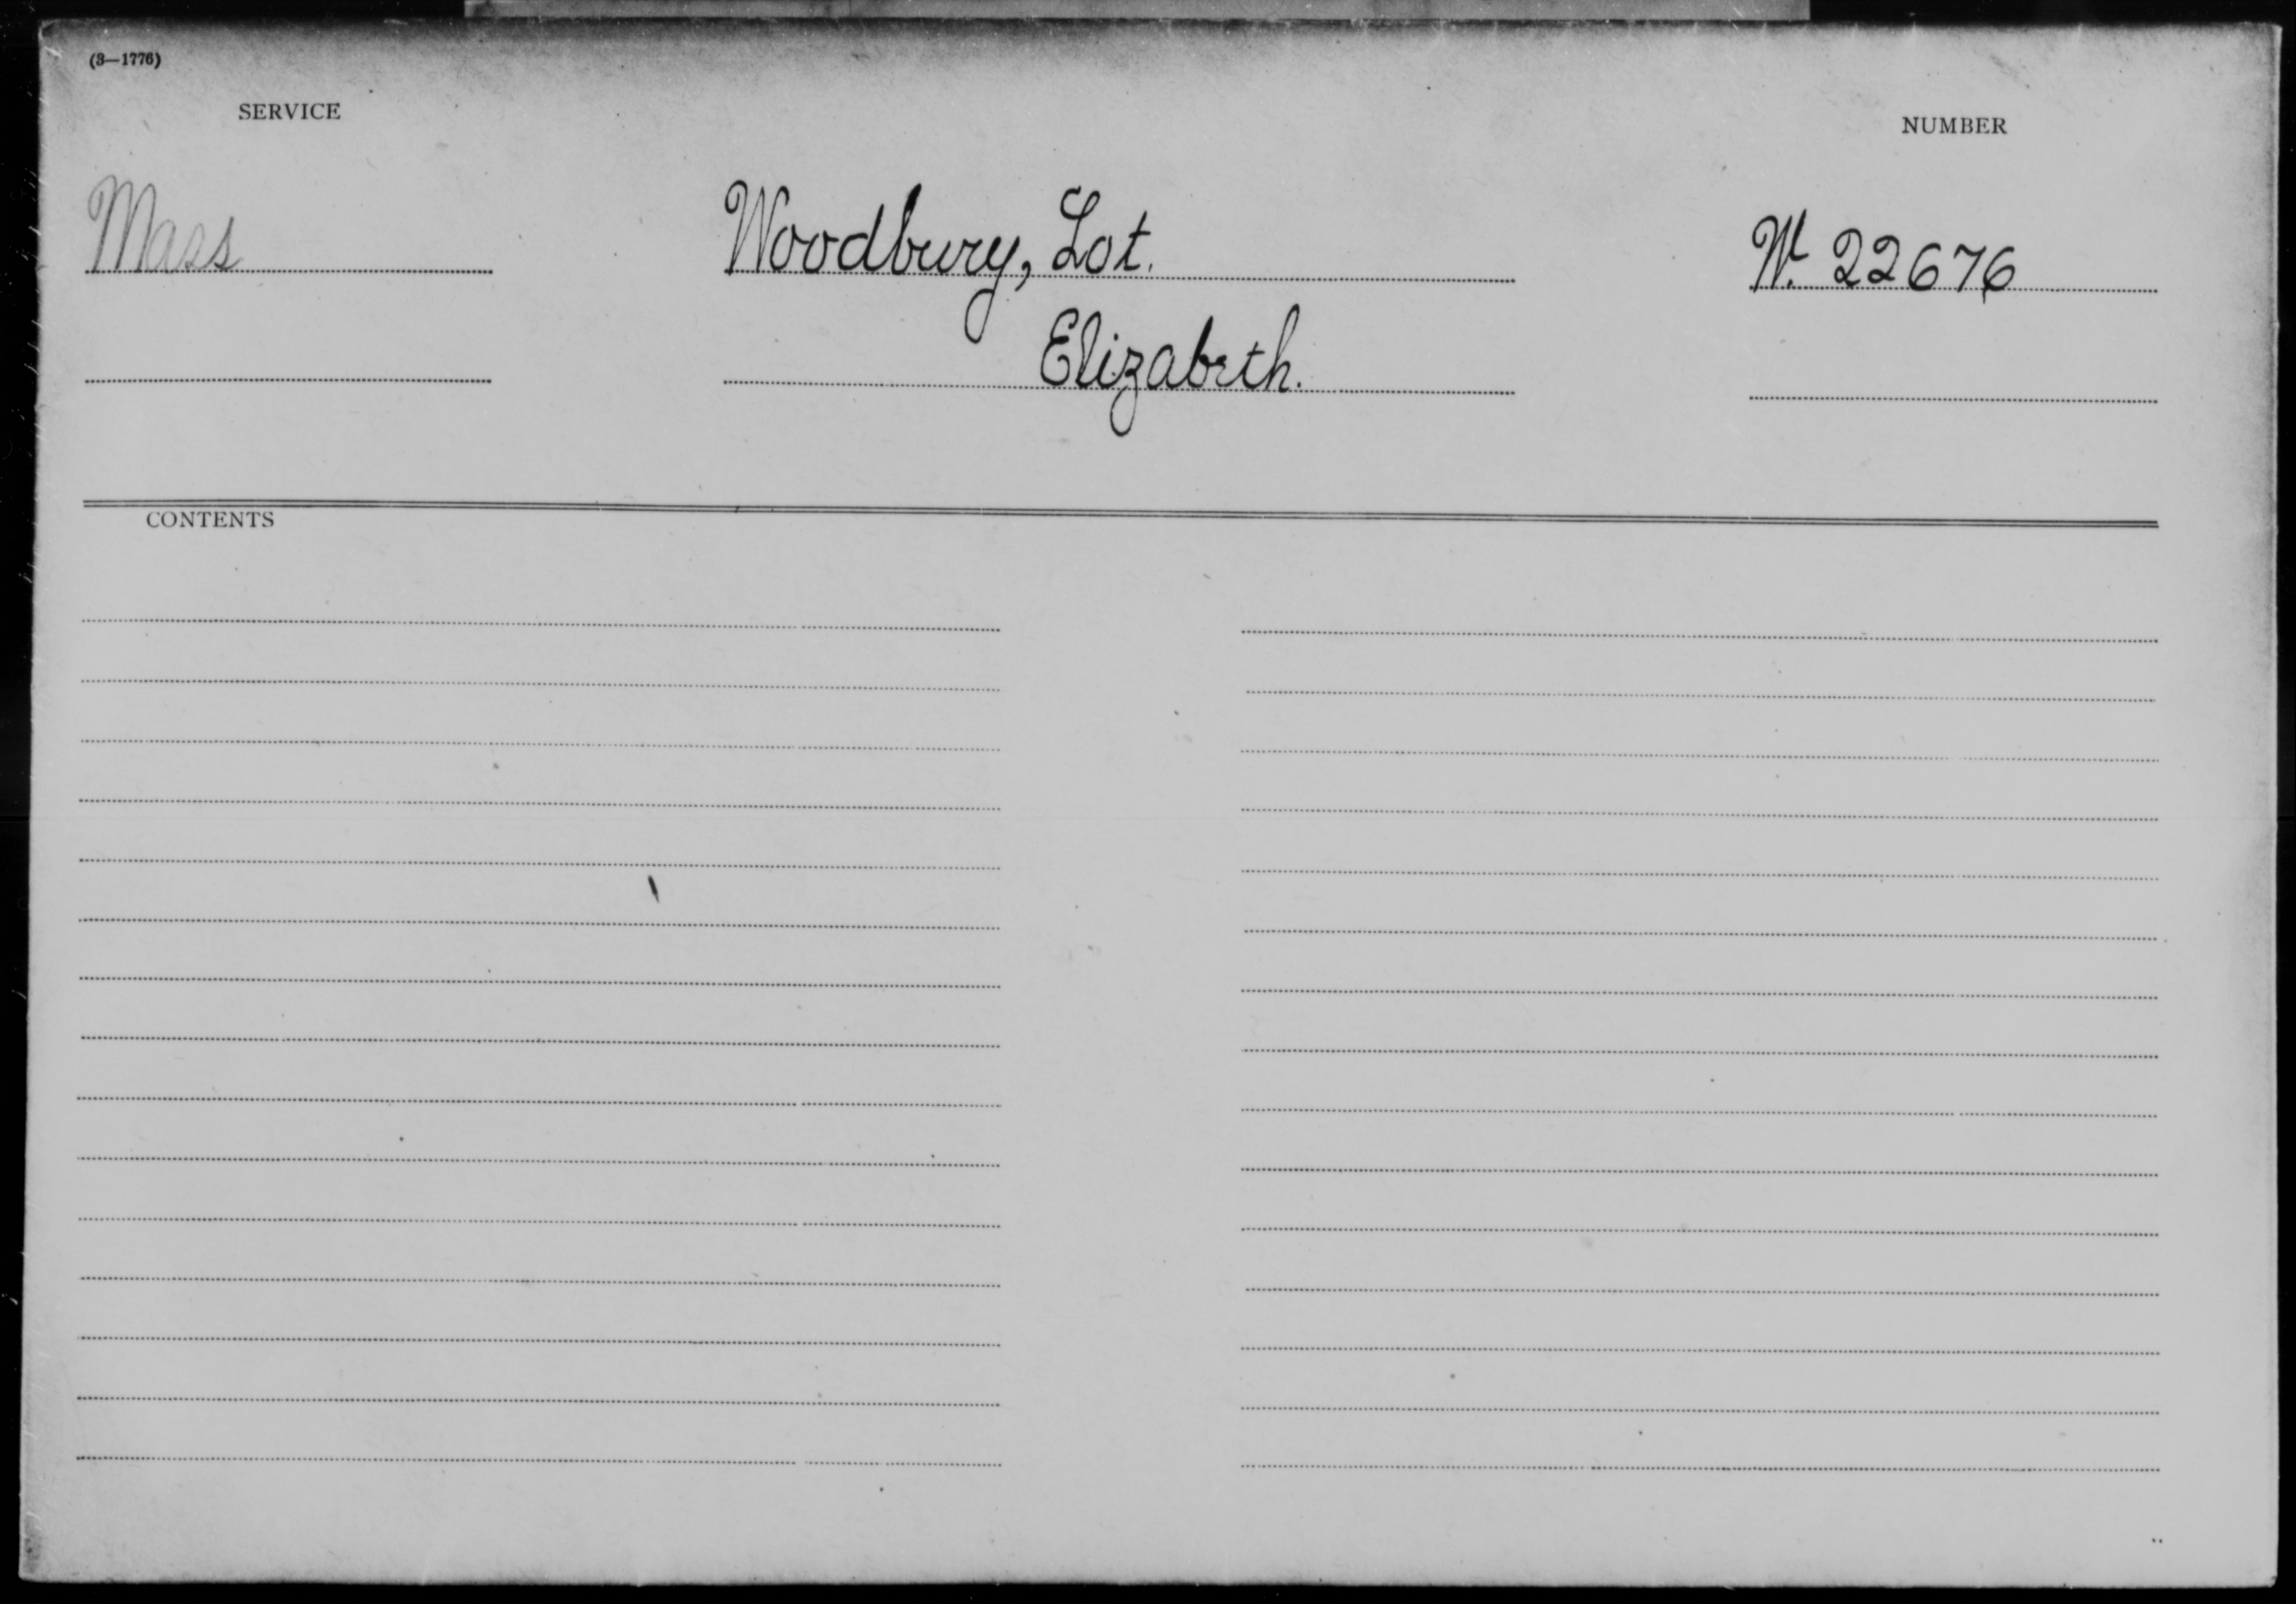 (3—1776)
SERVICE
NUMBER
Mass
Woodbury, Lot.
W. 22676
Elizabeth.
CONTENTS